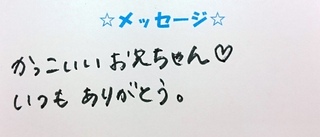 ☆メッセージ☆
かっこいいお兄ちゃん♡
いつもありがとう。